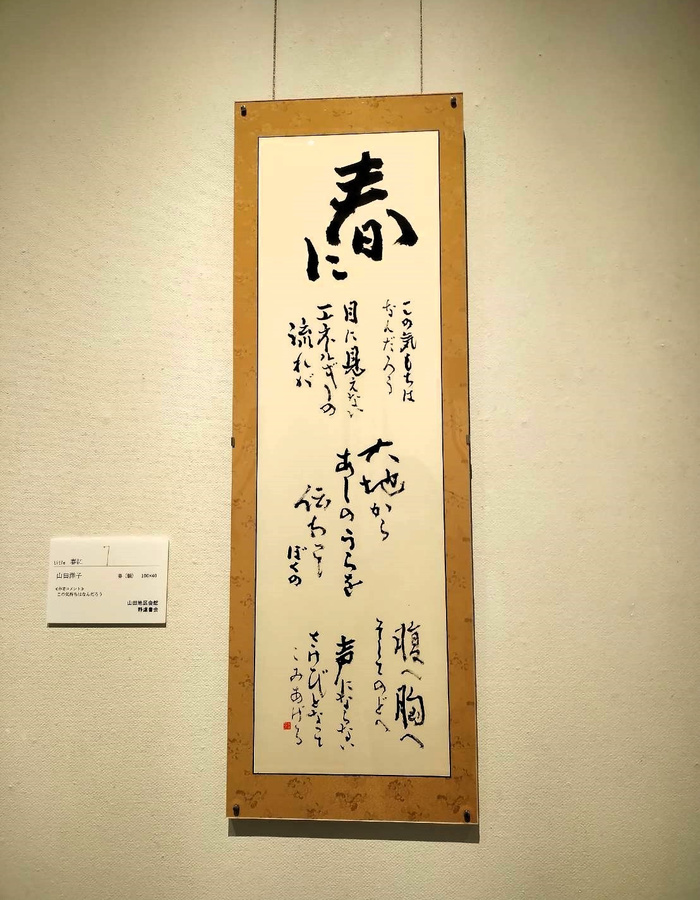 春に
この気もちは
なんだろう
目に見えない
エネルギーの
流れが
大地から
あしのうらを
伝わって
ぼくの
腹へ胸へ
そしてのどへ
声にならない
さけびとなって
こみあげる
title 春に
山田
100×40
この気持ちはなんだろう
山田地区会館